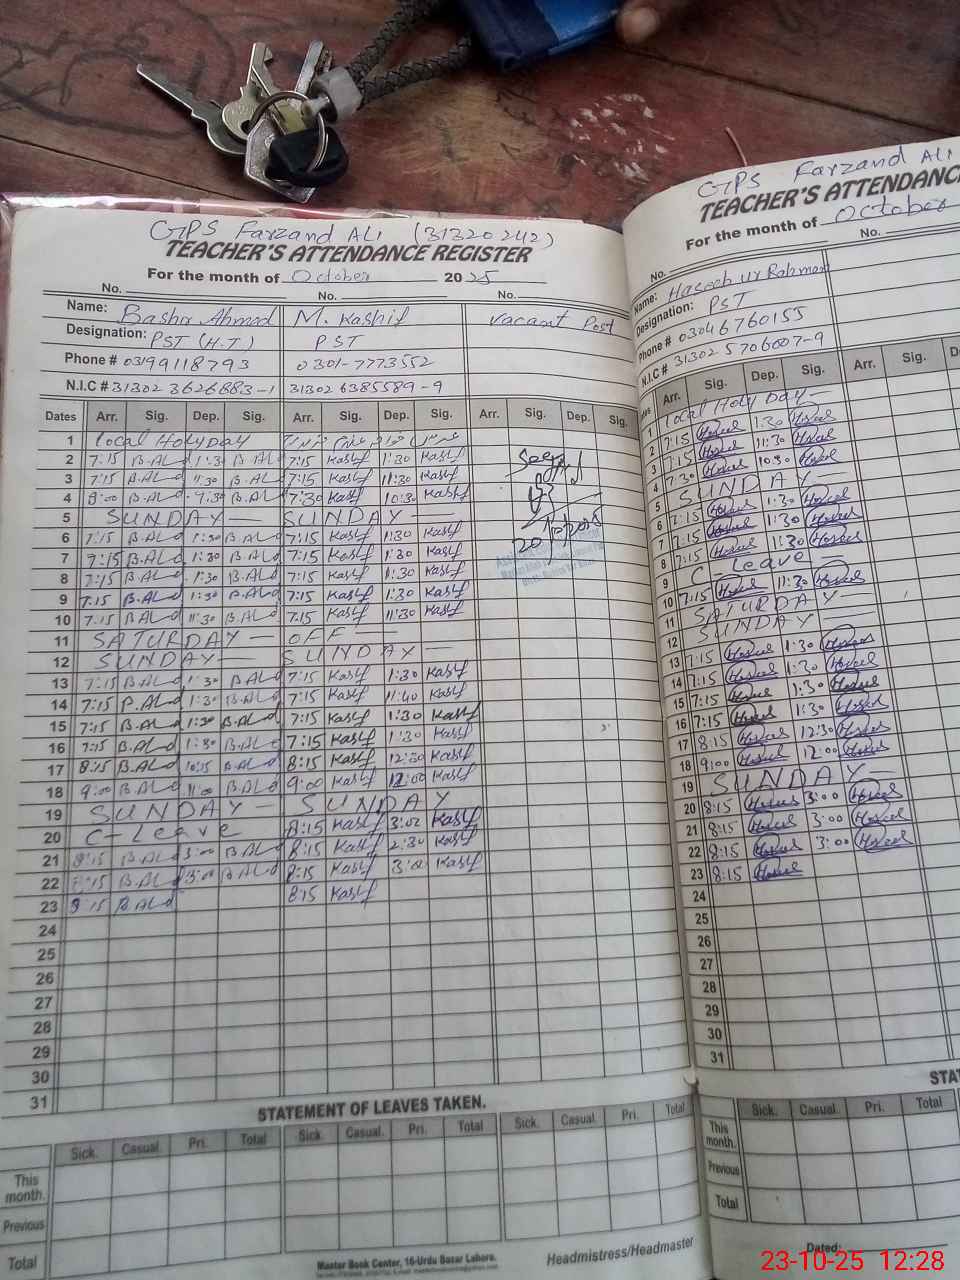 GPS Farzand Ali (31320242)
TEACHER'S ATTENDANCE REGISTER
For the month of October 2025
No. No. No.
Name: Bashir Ahmad M. Kashif Vacant Post
Designation: PST (H.T) PST
Phone # 03199118793 0301-7773552
N.I.C # 31302 3626883-1 31302 6385589-9
Dates Arr. Sig. Dep. Sig. Arr. Sig. Dep. Sig. Arr. Sig. Dep. Sig.
1 Local Holy Day
2 7:15 B.ALd 1:30 B.ALd 7:15 Kashf 1:30 Kashf
3 7:15 B.ALd 11:30 B.ALd 7:15 Kashf 11:30 Kashf
4 8:00 B.ALd B.ALd 7:30 Kashf 10:30 Kashf
5 SUNDAY — SUNDAY —
6 7:15 B.ALd 1:30 B.ALd 7:15 Kashf 1:30 Kashf
7 7:15 B.ALd 1:30 B.ALd 7:15 Kashf 1:30 Kashf
8 7:15 B.ALd 1:30 B.ALd 7:15 Kashf 1:30 Kashf
9 7:15 B.ALd 1:30 B.ALd 7:15 Kashf 1:30 Kashf
10 7:15 B.ALd 11:30 B.ALd 7:15 Kashf 11:30 Kashf
11 SATURDAY — OFF —
12 SUNDAY — SUNDAY —
13 7:15 B.ALd 1:30 B.ALd 7:15 Kashf 1:30 Kashf
14 7:15 B.ALd 1:30 B.ALd 7:15 Kashf 11:40 Kashf
15 7:15 B.ALd 1:30 B.ALd 7:15 Kashf 1:30 Kashf
16 7:15 B.ALd 1:30 B.ALd 7:15 Kashf 1:30 Kashf
17 8:15 B.ALd 10:15 B.ALd 8:15 Kashf 12:30 Kashf
18 9:00 B.ALd 11:00 B.ALd 9:00 Kashf 12:00 Kashf
19 SUNDAY — SUNDAY
20 C-Leave 8:15 Kashf 3:00 Kashf
21 8:15 B.ALd 3:00 B.ALd 8:15 Kashf 2:30 Kashf
22 8:15 B.ALd 3:00 B.ALd 8:15 Kashf 3:00 Kashf
23 8:15 B.ALd 8:15 Kashf
24
25
26
27
28
29
30
31
Seen
STATEMENT OF LEAVES TAKEN.
Sick. Casual. Pri. Total Sick. Casual. Pri. Total Sick. Casual. Pri. Total
This month.
Previous
Total
Master Book Center, 16-Urdu Bazar Lahore.
Headmistress/Headmaster
GPS Farzand Ali
TEACHER'S ATTENDANC
For the month of October
No. No.
Name: Haseeb ur Rahman
Designation: PST
Phone # 03046760155
N.I.C # 31302 5706007-9
Arr. Sig. Dep. Sig. Arr. Sig.
1 Local Holy Day —
2 7:15 1:30
3 7:15 11:30
4 7:30 10:30
5 SUNDAY —
6 7:15 1:30
7 7:15 1:30
8 7:15 11:30
9 C-Leave —
10 7:15 11:30
11 SATURDAY —
12 SUNDAY —
13 7:15 1:30
14 7:15 1:30
15 7:15 1:30
16 7:15 1:30
17 8:15 12:30
18 9:00 12:00
19 SUNDAY —
20 8:15 3:00
21 8:15 3:00
22 8:15 3:00
23 8:15
24
25
26
27
28
29
30
31
STA
Sick. Casual. Pri. Total
This month.
Previous
Total
Dated:
23-10-25 12:28